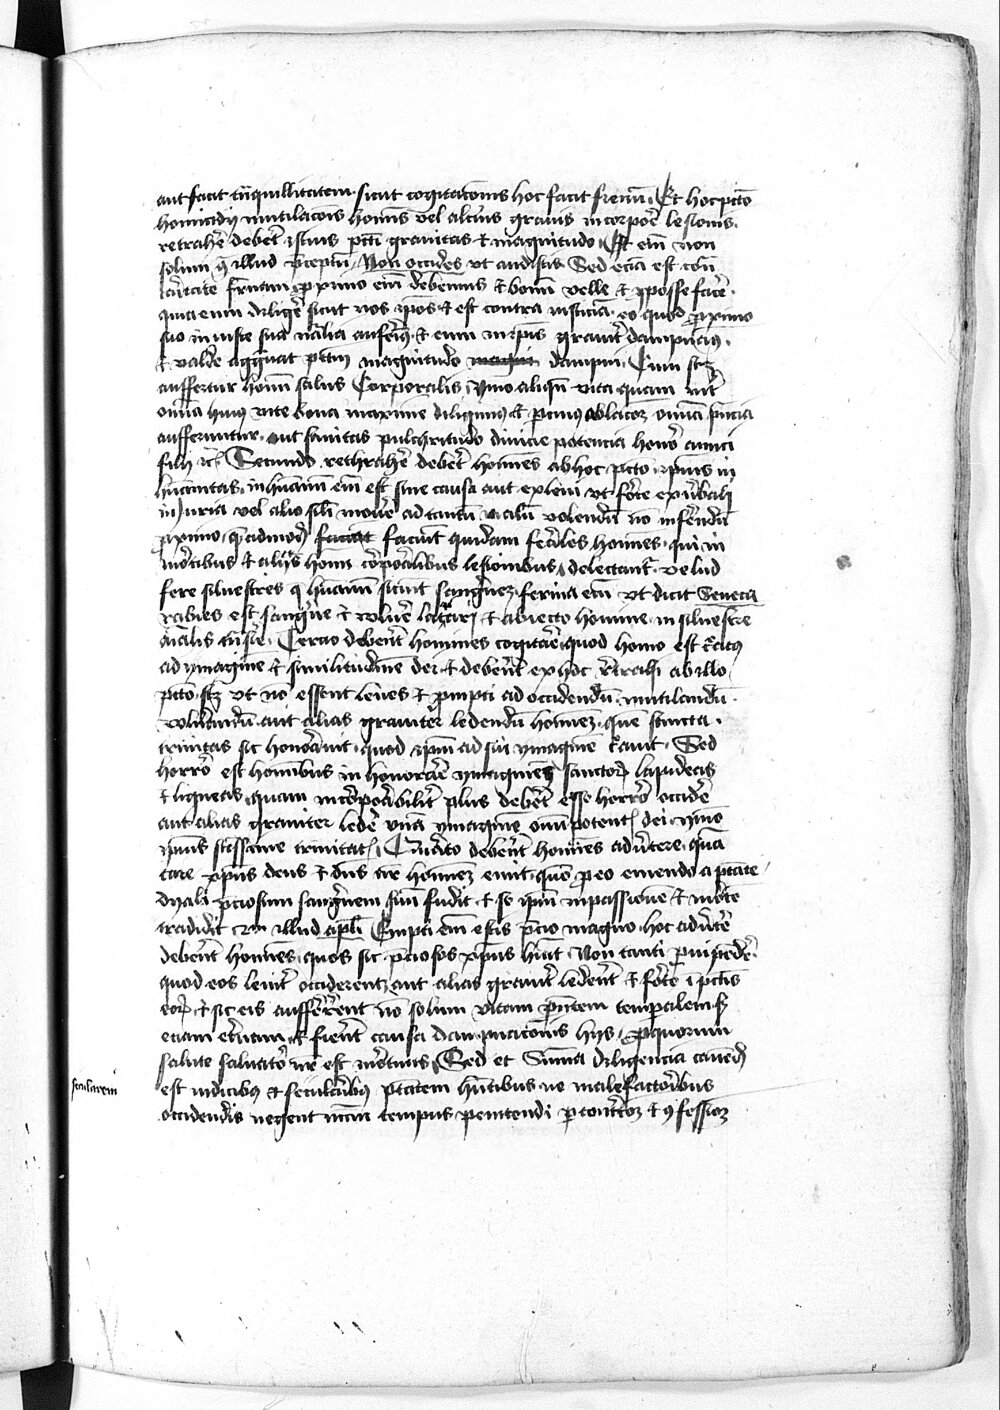 aut facit tranquillitatem sicut cogitacionis hoc facit frenum Et hoc pccto
homicidij mutilacois homis vel alterius gravis in corpore lesionis
retrahere debet istius pccti gravitas et magnitudo Est enim non
solum illud preceptum Non occides vt audistis Sed ecia est contra
caritate fraternam proximo enim debemus et bonum velle et posse facere
quia eum diligere sicut nos ipsos et est contra iusticia eo quod proximo
suo iniuste sua naturalia auferimus et eum in ipsis graviter dampnamus
et valde aggravat pcctum magnitudo dampni Cum scz
auffertur homini salus Corporalis ymo aliquando vita quam inter
omnia huius vite bona maxime diligimus et
aufferuntur aut sanitas pulchritudo divicie potencia honor amici
filij etc Secundo rethrahere debet homines ab hoc pccto ipsius in
humanitas inhumanum enim est sine causa aut ex leui vt forte ex verbali
iniuria vel alio simili mouere ad tantum malum volendum non inferendum
proximo quemadmodum faciunt quidam ferales homines qui in
mortibus et alijs hominum corporalibus lesionibus delectantur velud
fere siluestres humanum siciunt sanguinem ferina enim vt dicit Seneca
rabies est sanguine et vulnere letari et abiecto homine in siluestre
animalis transire Tercio debent homines cogitare quod homo est creatus
ad ymaginem et similitudinem dei et debent ex hoc retrahi ab illo
pccto scz vt non essent leues et prompti ad occidendum mutilandum
vulnerandum aut alias grauiter ledendum hominem quem sancta
trinitas sic honorauit quod ipsum ad sui ymaginem creauit Sed
horror est hominibus inhonorare ymagines sanctorum lapideas
et ligneas quam incomparabiliter plus debet esse horror occidere
aut alias grauiter ledere viuam ymaginem omnipotentis dei ymo
ipsius sctissime trinitatis Quarto debent homines aduertere quam
care xpus deus et dns noster hominem emit quem pro eo emendo a ptate
dyaboli preciosum sanguinem suum fudit et se ipsum in passionem et mortem
tradidit iuxta illud apli Empti enim estis precio magno hoc aduertere
debent homines quos sic preciosos xpus habuit Non tanti
quod eos leuiter occiderent aut alias grauiter lederent et forte in pcctis
eorum et sic eis aufferrent non solum vitam presentem temporalem sed
etiam eternam et fierent causa dampnacionis hijs pro quorum
salute saluator noster est mortuus Sed et Summa diligencia cauendum
est iudicibus et secularibus ptatem habentibus ne malefactoribus
secularem
occidendis negent verum tempus penitendi per contricionem et confessionem